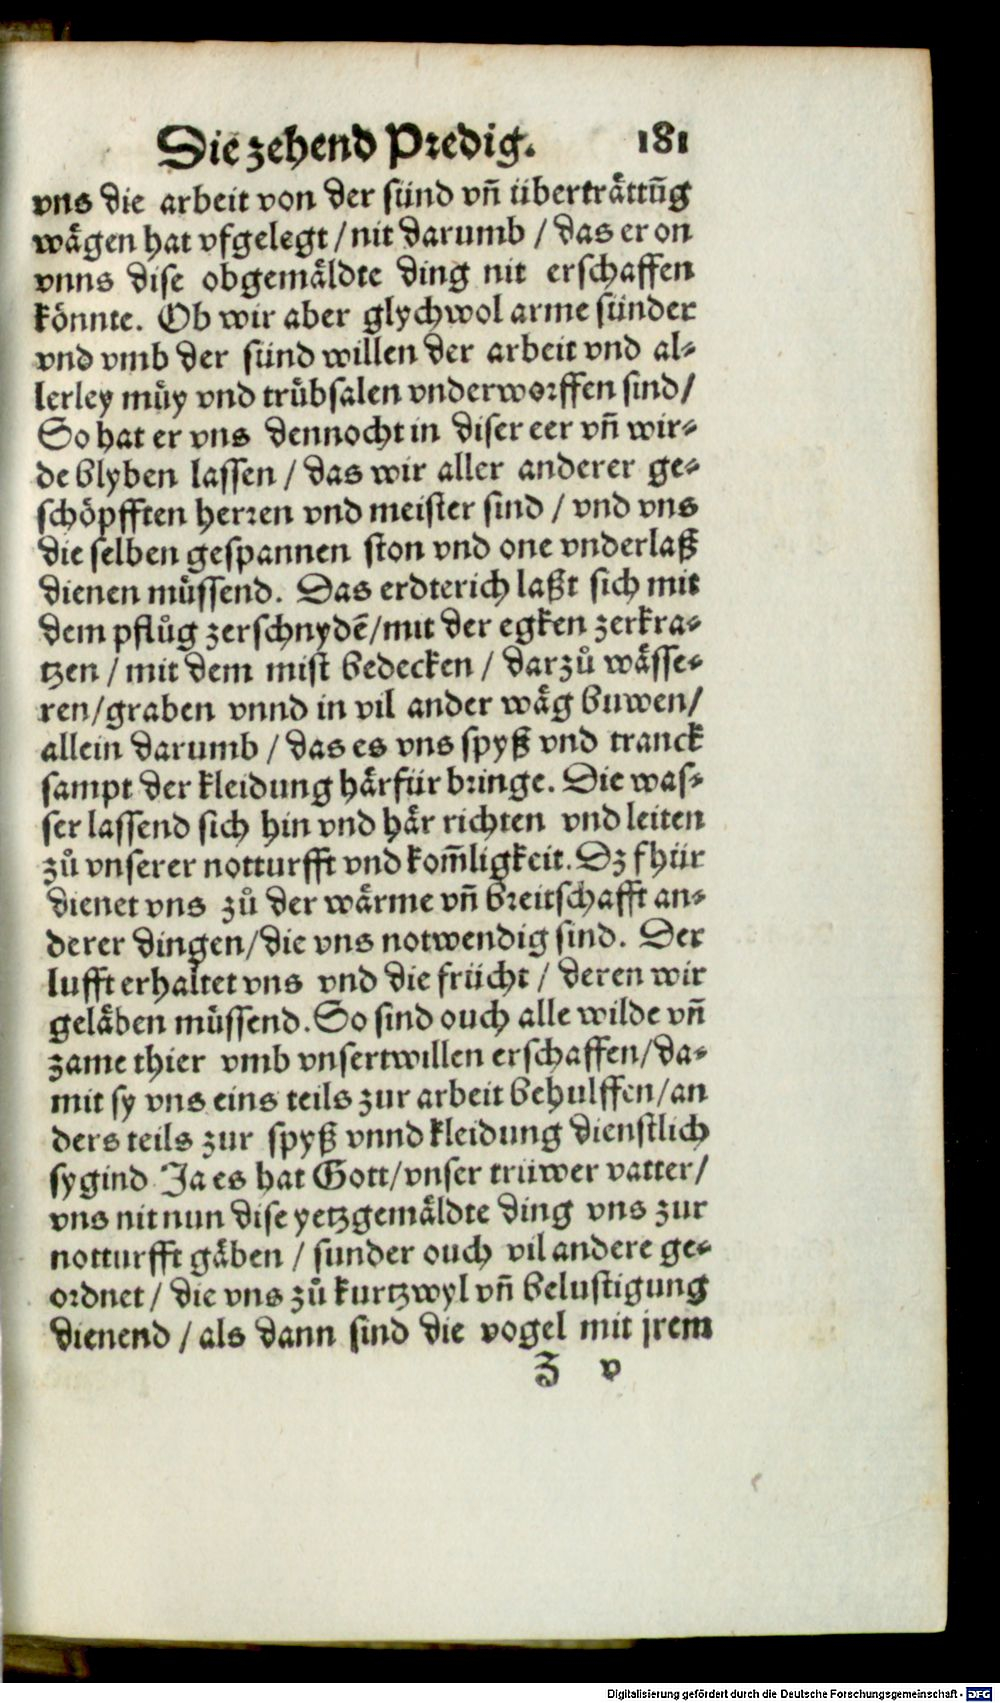 Die zehend Predig. 181
vns die arbeit von der sünd vn̄ überträttūg
wägen hat vfgelegt / nit darumb / das er on
vnns dise obgemäldte ding nit erschaffen
könnte. Ob wir aber glychwol arme sünder
vnd vmb der sünd willen der arbeit vnd al⸗
lerley müy vnd trübsalen vnderworffen sind /
So hat er vns dennocht in diser eer vn̄ wir⸗
de blyben lassen / das wir aller anderer ge⸗
schöpfften herren vnd meister sind / vnd vns
die selben gespannen ston vnd one vnderlaß
dienen müssend. Das erdterich laßt sich mit
dem pflůg zerschnydē / mit der egken zerkra⸗
tzen / mit dem mist bedecken / darzů wässe⸗
ren / graben vnnd in vil ander wäg buwen /
allein darumb / das es vns spyß vnd tranck
sampt der kleidung härfür bringe. Die was⸗
ser lassend sich hin vnd här richten vnd leiten
zů vnserer notturfft vnd kom̄ligkeit. Dz fhür
dienet vns zů der wärme vn̄ breitschafft an⸗
derer dingen / die vns notwendig sind. Der
lufft erhaltet vns vnd die frücht / deren wir
geläben müssend. So sind ouch alle wilde vn̄
zame thier vmb vnsertwillen erschaffen / da⸗
mit sy vns eins teils zur arbeit behulffen / an
ders teils zur spyß vnnd kleidung dienstlich
sygind Ja es hat Gott / vnser trüwer vatter /
vns nit nun dise yetzgemäldte ding vns zur
notturfft gäben / sunder ouch vil andere ge⸗
ordnet / die vns zů kurtzwyl vn̄ belustigung
dienend / als dann sind die vogel mit jrem
Z v
Digitalisierung gefördert durch die Deutsche Forschungsgemeinschaft - DFG